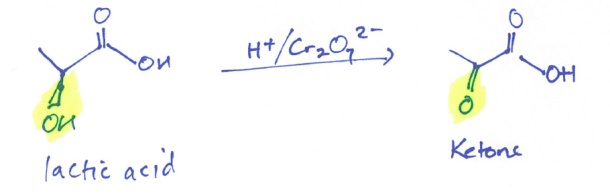 O
OH
OH
lactic acid
H+/Cr₂O₇²⁻
O
OH
O
Ketone